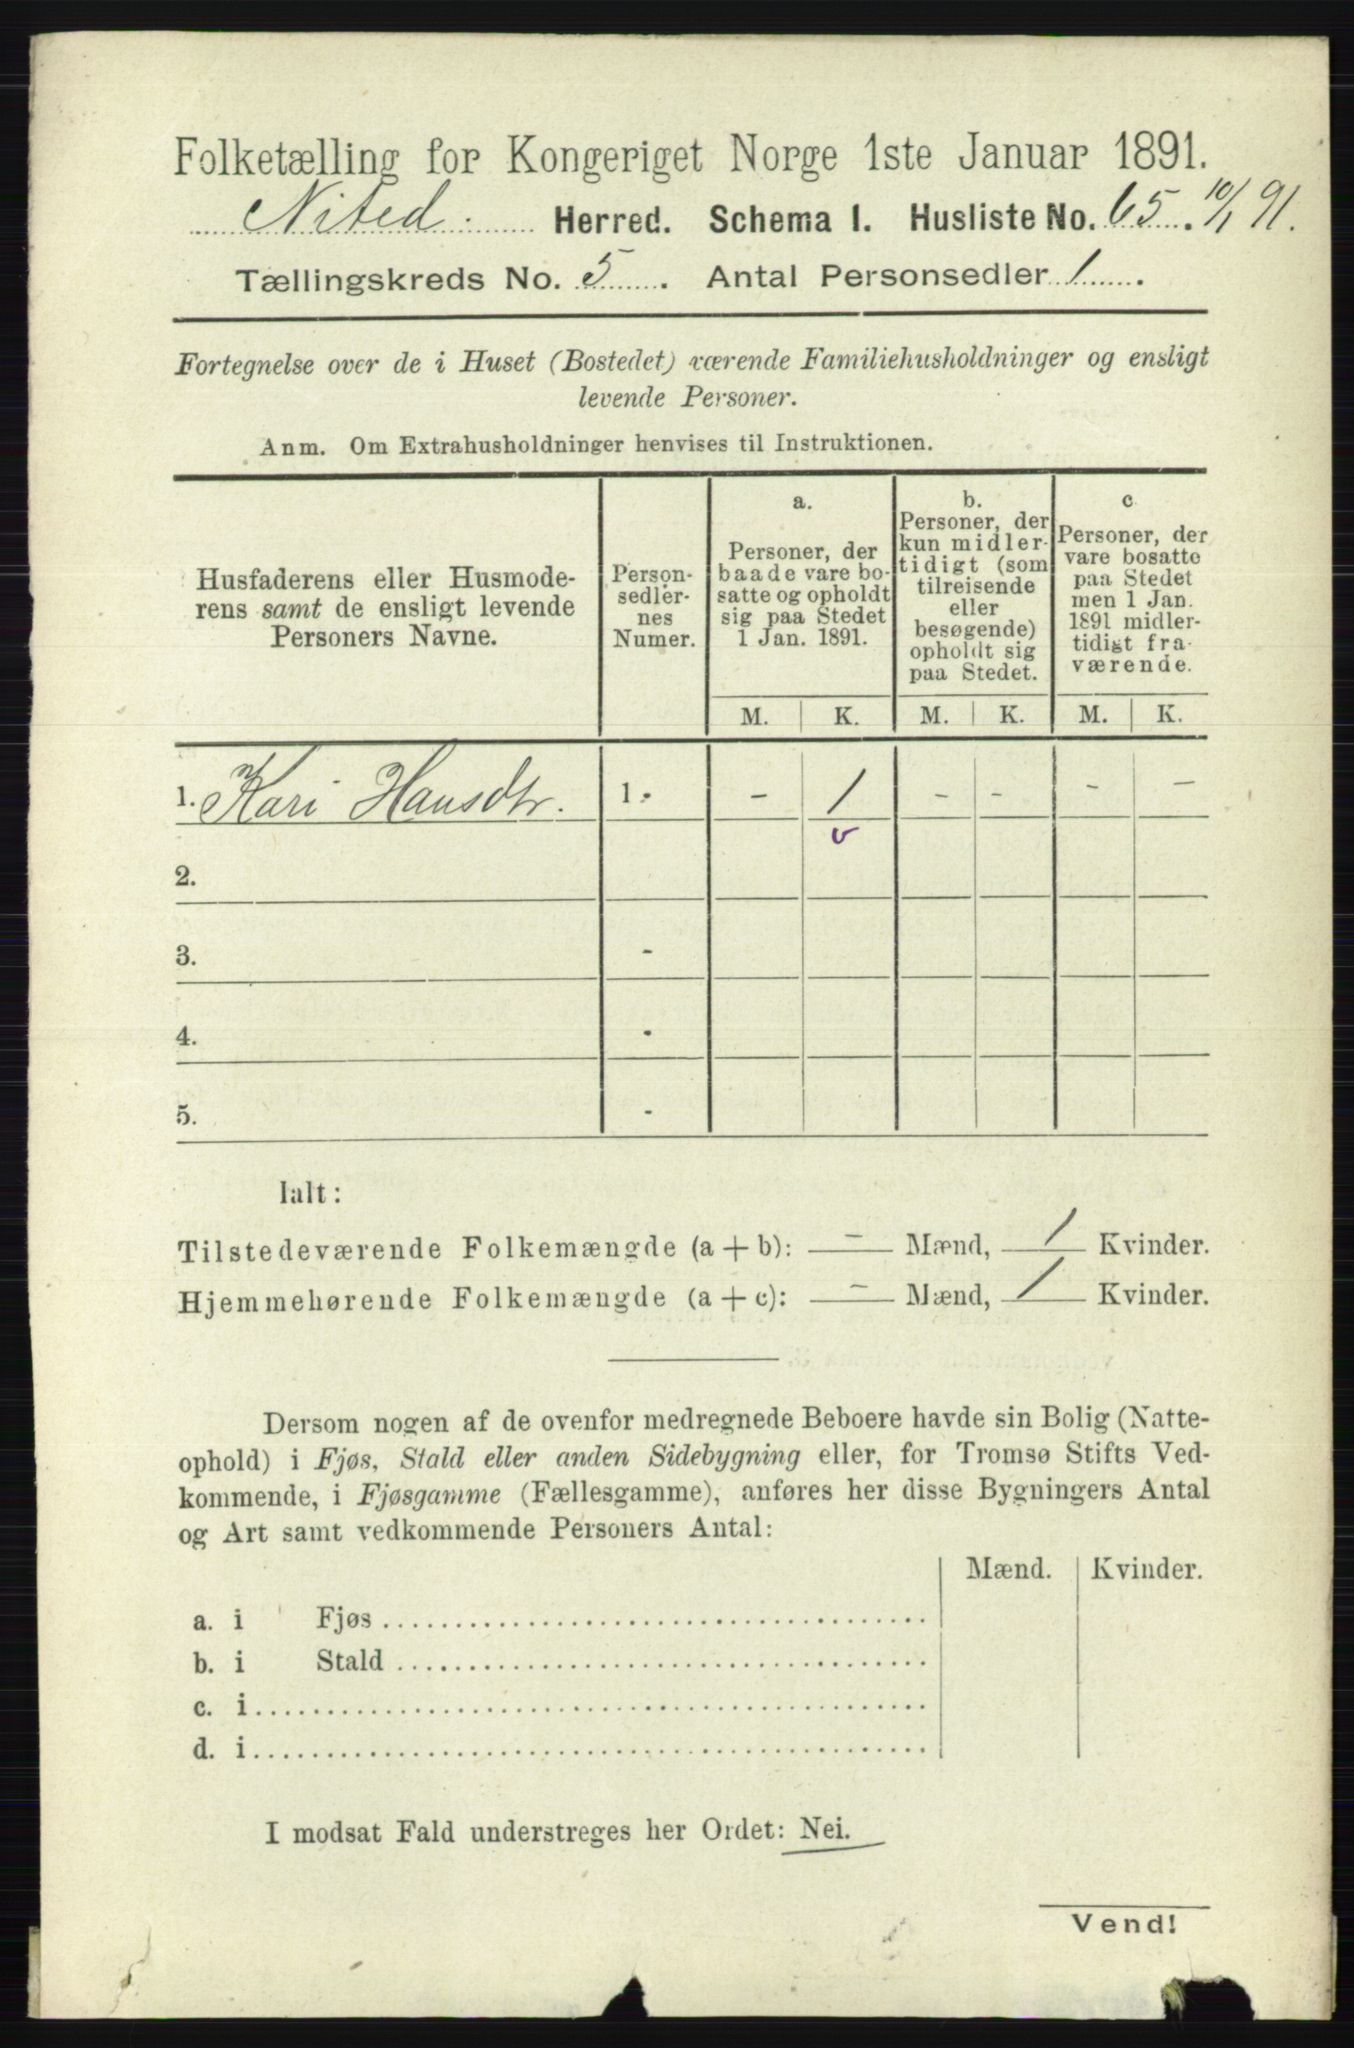 Folketælling for Kongeriget Norge 1ste Januar 1891.
Nited. Herred. Schema I. Husliste No. 65. 10/1 91.
Tællingskreds No. 5. Antal Personsedler 1.
Fortegnelse over de i Huset (Bostedet) værende Familiehusholdninger og ensligt
levende Personer.
Anm. Om Extrahusholdninger henvises til Instruktionen.
Husfaderens eller Husmode-
rens samt de ensligt levende
Personers Navne.
Person-
sedler-
nes
Numer.
a.
Personer, der
baade vare bo-
satte og opholdt
sig paa Stedet
1 Jan. 1891.
b.
Personer, der
kun midler-
tidigt (som
tilreisende
eller
besøgende)
opholdt sig
paa Stedet.
c
Personer, der
vare bosatte
paa Stedet
men 1 Jan.
1891 midler-
tidigt fra-
værende.
M. K. M. K. M. K.
1. Kari Hansdtr. 1. - 1 - - - -
v
2.
3. -
4. -
5. -
Ialt:
Tilstedeværende Folkemængde (a + b): - Mænd, 1 Kvinder.
Hjemmehørende Folkemængde (a + c): - Mænd, 1 Kvinder.
Dersom nogen af de ovenfor medregnede Beboere havde sin Bolig (Natte-
ophold) i Fjøs, Stald eller anden Sidebygning eller, for Tromsø Stifts Ved-
kommende, i Fjøsgamme (Fællesgamme), anføres her disse Bygningers Antal
og Art samt vedkommende Personers Antal:
Mænd. Kvinder.
a. i Fjøs
b. i Stald
c. i
d. i
I modsat Fald understreges her Ordet: Nei.
Vend!